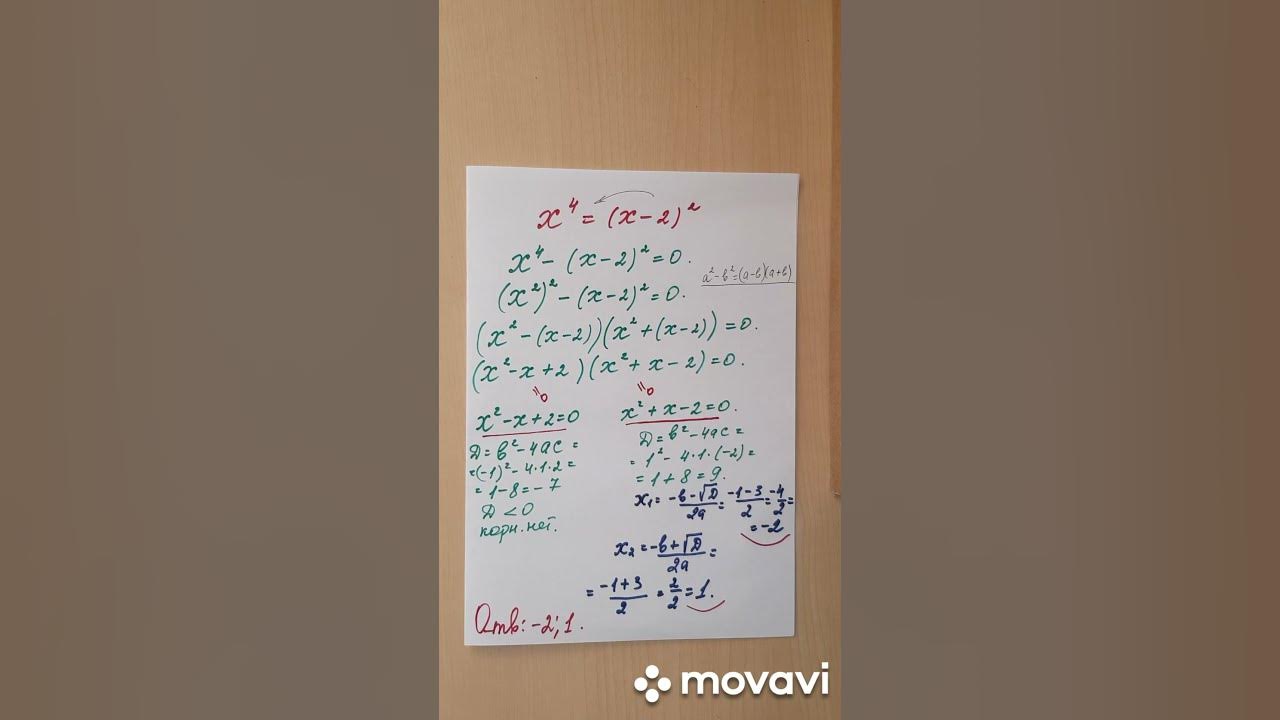 x⁴ = (x-2)²
x⁴ - (x-2)² = 0.
a² - b² = (a-b)(a+b)
(x²)² - (x-2)² = 0.
(x² - (x-2))(x² + (x-2)) = 0.
(x² - x + 2)(x² + x - 2) = 0.
=0
=0
x² - x + 2 = 0
D = b² - 4ac =
= (-1)² - 4·1·2 =
= 1 - 8 = -7
D < 0
корн. нет.
x² + x - 2 = 0.
D = b² - 4ac =
= 1² - 4·1·(-2) =
= 1 + 8 = 9.
x₁ = (-b-√D)/2a = (-1-3)/2 = -4/2 =
= -2
x₂ = (-b+√D)/2a =
= (-1+3)/2 = 2/2 = 1.
Отв: -2; 1.
movavi